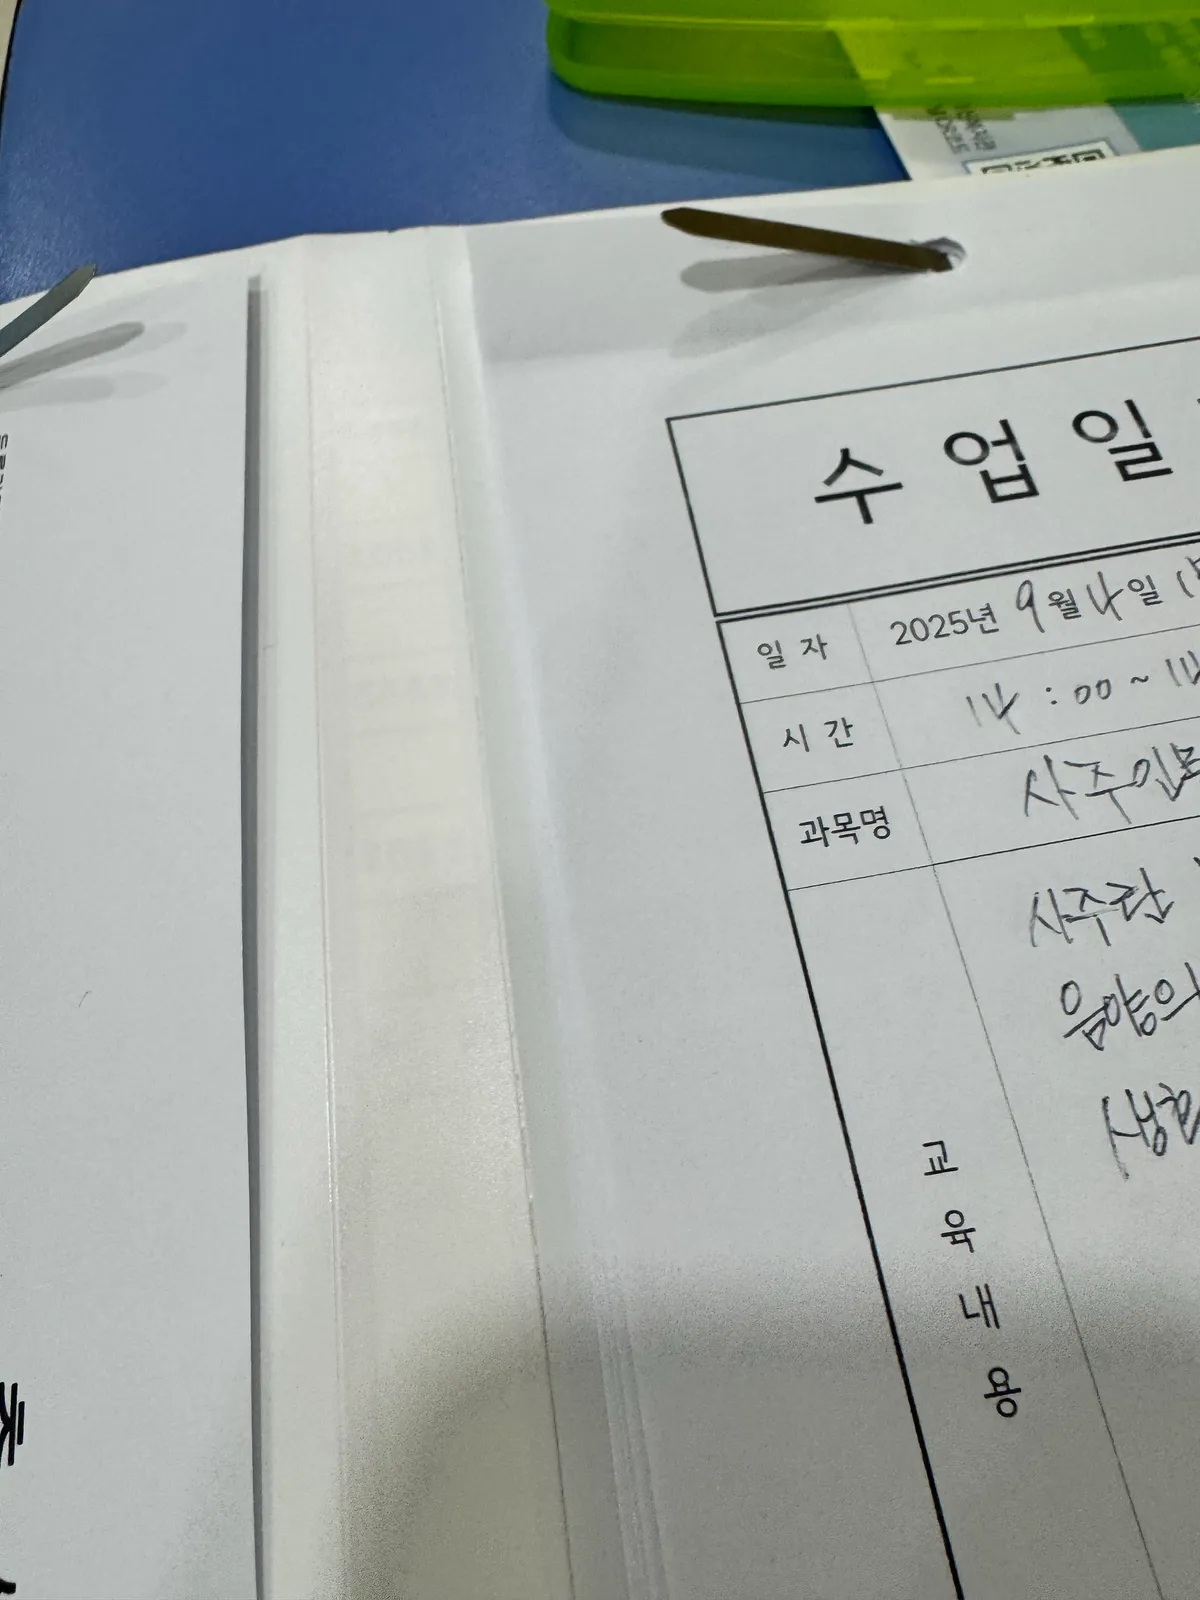 수 업 일
일 자 2025년 9월 4일
시 간 14 : 00 ~
과목명 사주
사주란
음양의
교
육
내
용